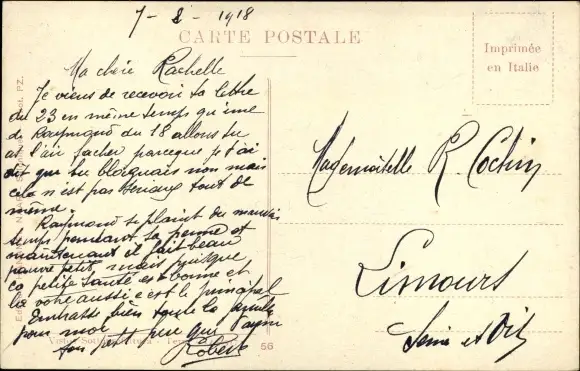 7-2-1918
CARTE POSTALE
Imprimée
en Italie
Ma chère Rachelle
Je viens de recevoir ta lettre
du 23 en même temps qu'une
de Raymond du 18 allons tu
as l'air facher parceque je t'ai
dit que tu blaguais non mais
cela n'est pas sérieux tout de
même.
Raymond se plaint du mauvais
temps pendant sa perme et
maintenant il fait beau
pauvre petit, mais puisque
ta petite santé est bonne et
la votre aussi c'est le principal
Embrasse bien toute la famille
pour moi
ton petit que qui t'aime
Robert
56
Mademoiselle R. Cochin
Limours
Seine et Oise